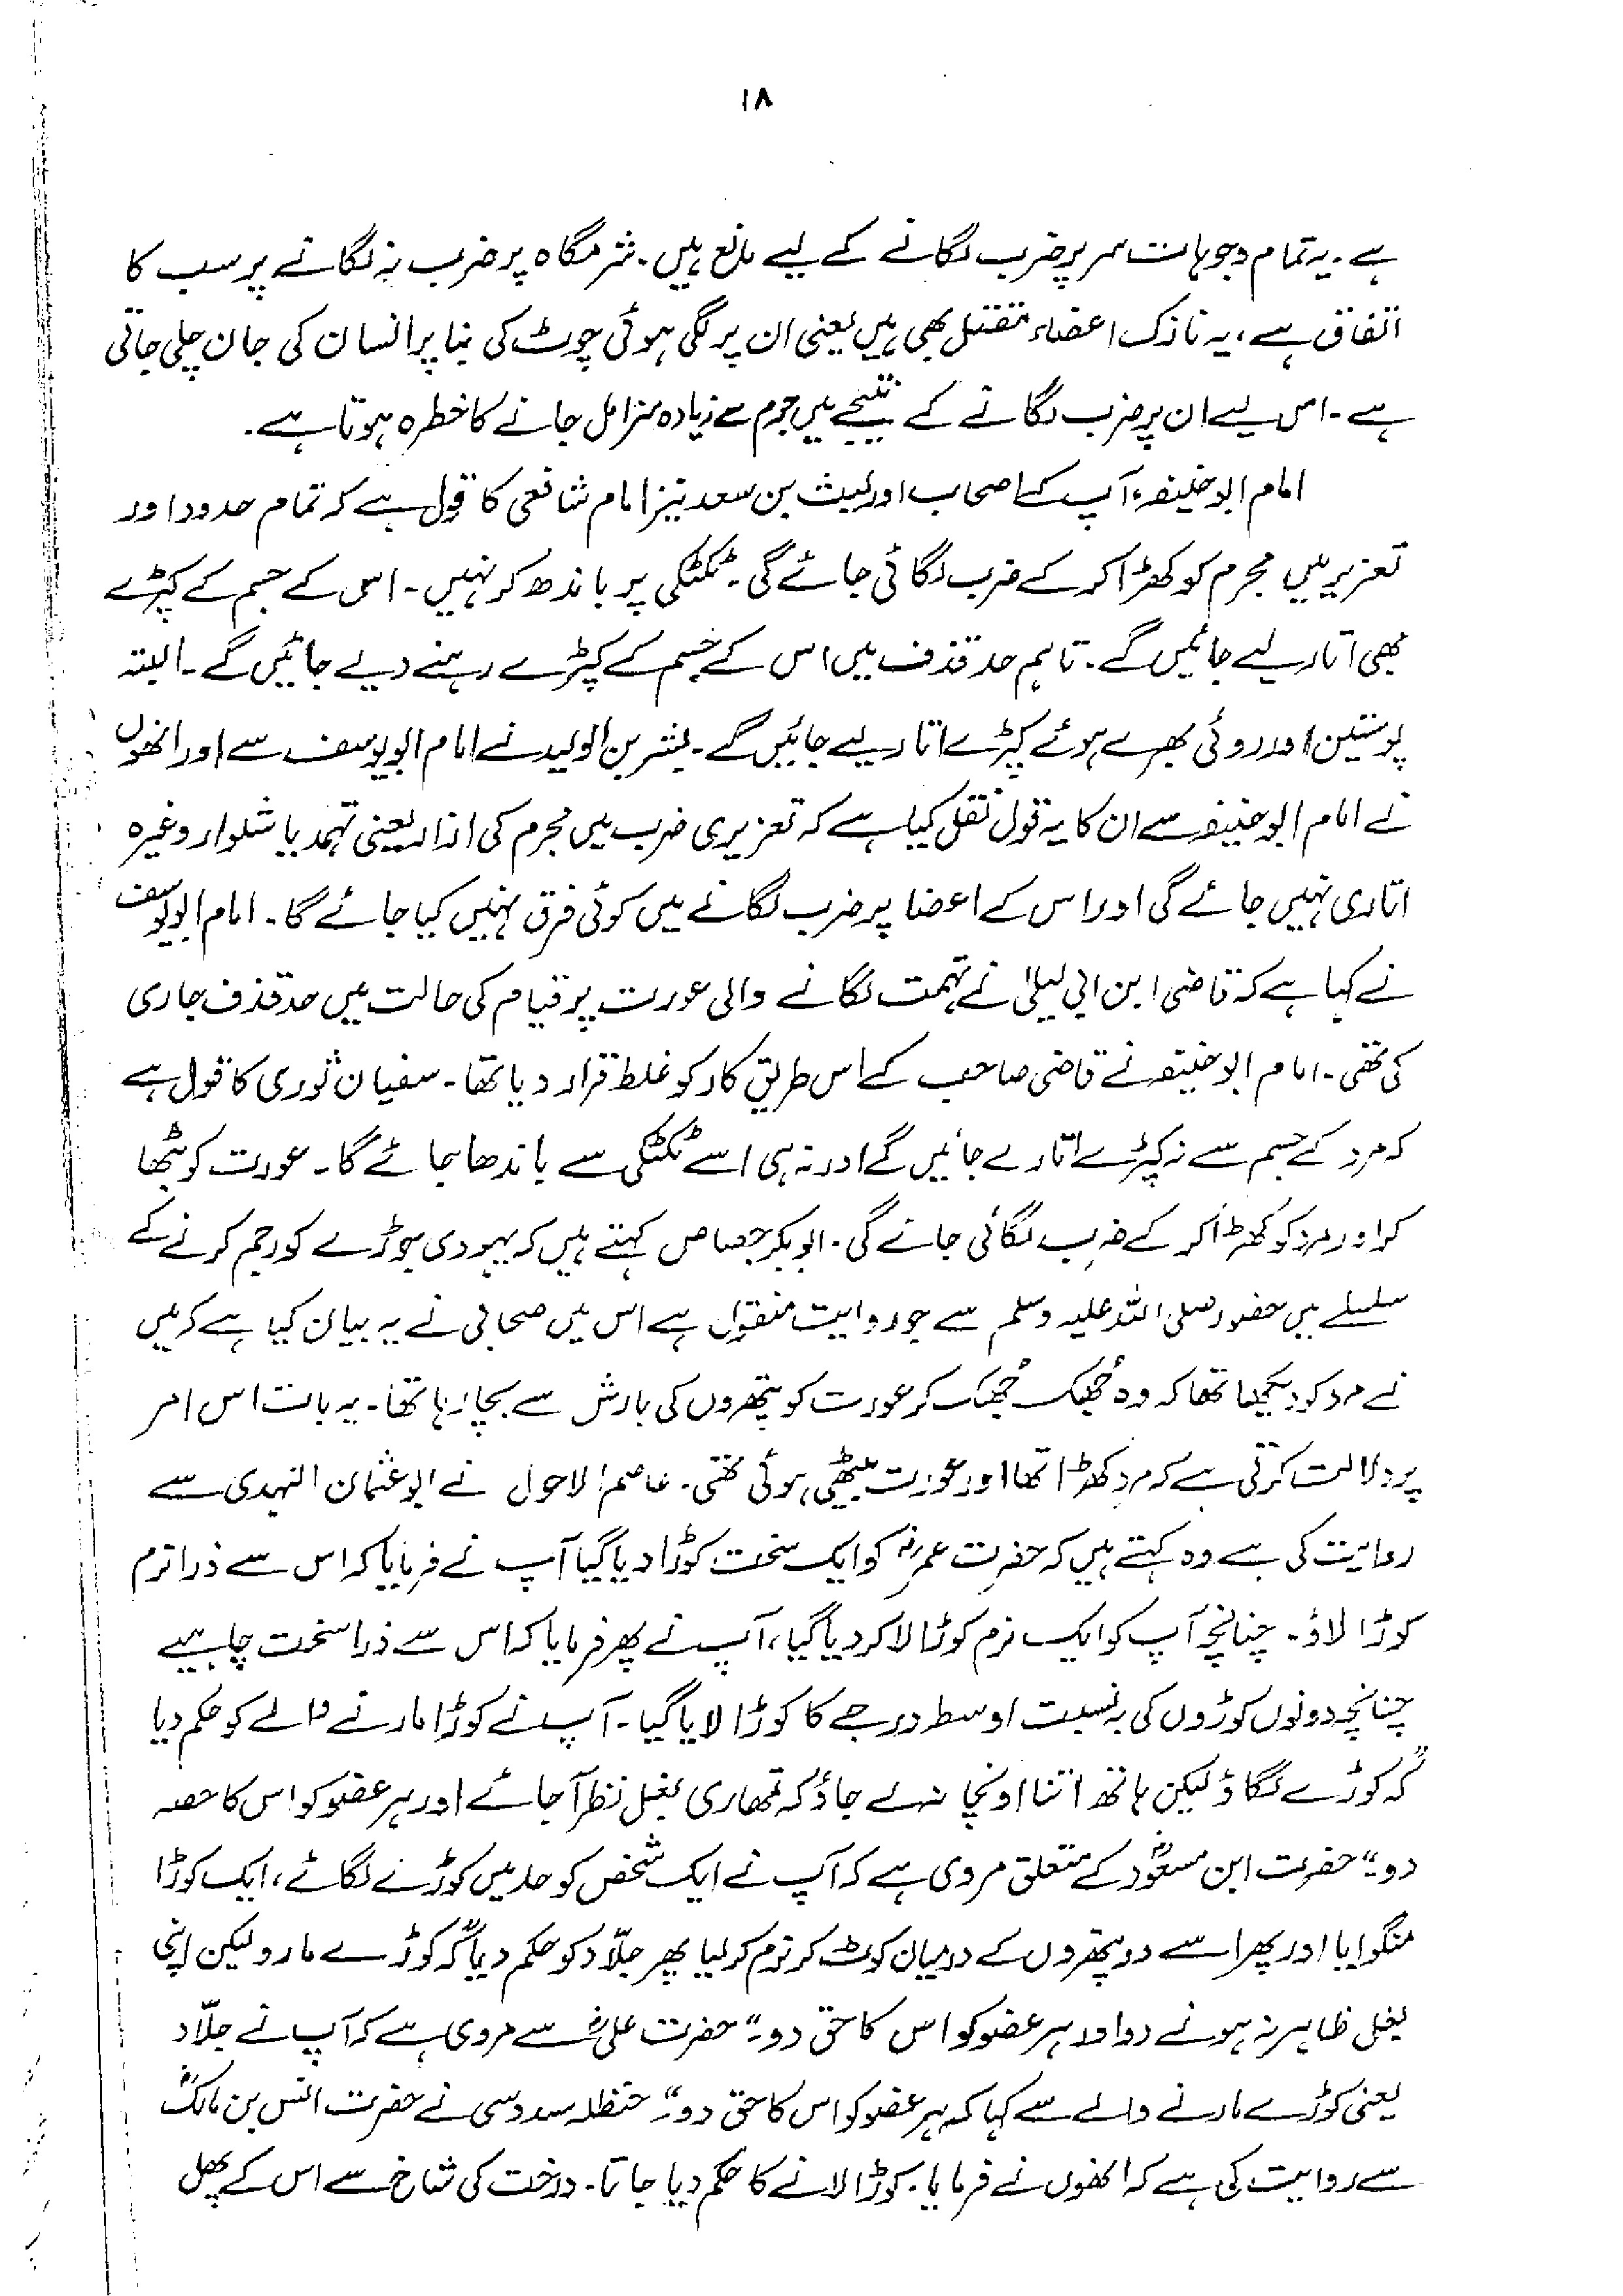 ۱۸
ہے۔ یہ تمام وجوہات سر پر ضرب لگانے کے لیے مانع ہیں۔ شرمگاہ پر ضرب نہ لگانے پر سب کا
اتفاق ہے، یہ نازک اعضاء مقتل بھی ہیں یعنی ان پر لگی ہوئی چوٹ کی بنا پر انسان کی جان چلی جاتی
ہے۔ اس لیے ان پر ضرب لگانے کے نتیجے میں جرم سے زیادہ سزا مل جانے کا خطرہ ہوتا ہے۔
امام ابوحنیفہ، آپ کے اصحاب اور لیث بن سعد نیز امام شافعی کا قول ہے کہ تمام حدود اور
تعزیر میں مجرم کو کھڑا کر کے ضرب لگائی جائے گی۔ ٹکٹکی پر باندھ کر نہیں۔ اس کے جسم کے کپڑے
بھی اتار لیے جائیں گے۔ تاہم حد قذف میں اس کے جسم کے کپڑے رہنے دیے جائیں گے۔ البتہ
پوستین اور روئی بھرے ہوئے کپڑے اتار لیے جائیں گے۔ بشر بن الولید نے امام ابویوسف سے اور انھوں
نے امام ابوحنیفہ سے ان کا یہ قول نقل کیا ہے کہ تعزیری ضرب میں مجرم کی ازار یعنی تہمد یا شلوار وغیرہ
اتاری نہیں جائے گی اور اس کے اعضا پر ضرب لگانے میں کوئی فرق نہیں کیا جائے گا۔ امام ابویوسف
نے کہا ہے کہ قاضی ابن ابی لیلیٰ نے تہمت لگانے والی عورت پر قیام کی حالت میں حد قذف جاری
کی تھی۔ امام ابوحنیفہ نے قاضی صاحب کے اس طریق کار کو غلط قرار دیا تھا۔ سفیان ثوری کا قول ہے
کہ مرد کے جسم سے نہ کپڑے اتارے جائیں گے اور نہ ہی اسے ٹکٹکی سے باندھا جائے گا۔ عورت کو بٹھا
کر اور مرد کو کھڑا کر کے ضرب لگائی جائے گی۔ ابوبکر جصاص کہتے ہیں کہ یہودی جوڑے کو رجم کرنے کے
سلسلے میں حضور صلی اللہ علیہ وسلم سے جو روایت منقول ہے اس میں صحابی نے یہ بیان کیا ہے کہ میں
نے مرد کو دیکھا تھا کہ وہ جُھک جُھک کر عورت کو پتھروں کی بارش سے بچا رہا تھا۔ یہ بات اس امر
پر دلالت کرتی ہے کہ مرد کھڑا تھا اور عورت بیٹھی ہوئی تھی۔ عاصم الاحول نے ابوعثمان النہدی سے
روایت کی ہے وہ کہتے ہیں کہ حضرت عمرؓ کو ایک سخت کوڑا دیا گیا آپ نے فرمایا کہ اس سے ذرا نرم
کوڑا لاؤ۔ چنانچہ آپ کو ایک نرم کوڑا لا کر دیا گیا، آپ نے پھر فرمایا کہ اس سے ذرا سخت چاہیے
چنانچہ دونوں کوڑوں کی بہ نسبت اوسط درجے کا کوڑا لایا گیا۔ آپ نے کوڑا مارنے والے کو حکم دیا
"کہ کوڑے لگاؤ لیکن ہاتھ اتنا اونچا نہ لے جاؤ کہ تمھاری بغل نظر آ جائے اور ہر عضو کو اس کا حصہ
دو۔" حضرت ابن مسعودؓ کے متعلق مروی ہے کہ آپ نے ایک شخص کو حد میں کوڑے لگائے، ایک کوڑا
منگوایا اور پھر اسے دو پتھروں کے درمیان کوٹ کر نرم کر لیا پھر جلّاد کو حکم دیا "کہ کوڑے مارو لیکن اپنی
بغل ظاہر نہ ہونے دو اور ہر عضو کو اس کا حق دو۔" حضرت علیؓ سے مروی ہے کہ آپ نے جلّاد
یعنی کوڑے مارنے والے سے کہا کہ ہر عضو کو اس کا حق دو۔" حنظلہ سدوسی نے حضرت انس بن مالکؓ
سے روایت کی ہے کہ انھوں نے فرمایا۔ کوڑا لانے کا حکم دیا جاتا۔ درخت کی شاخ سے اس کے پھل